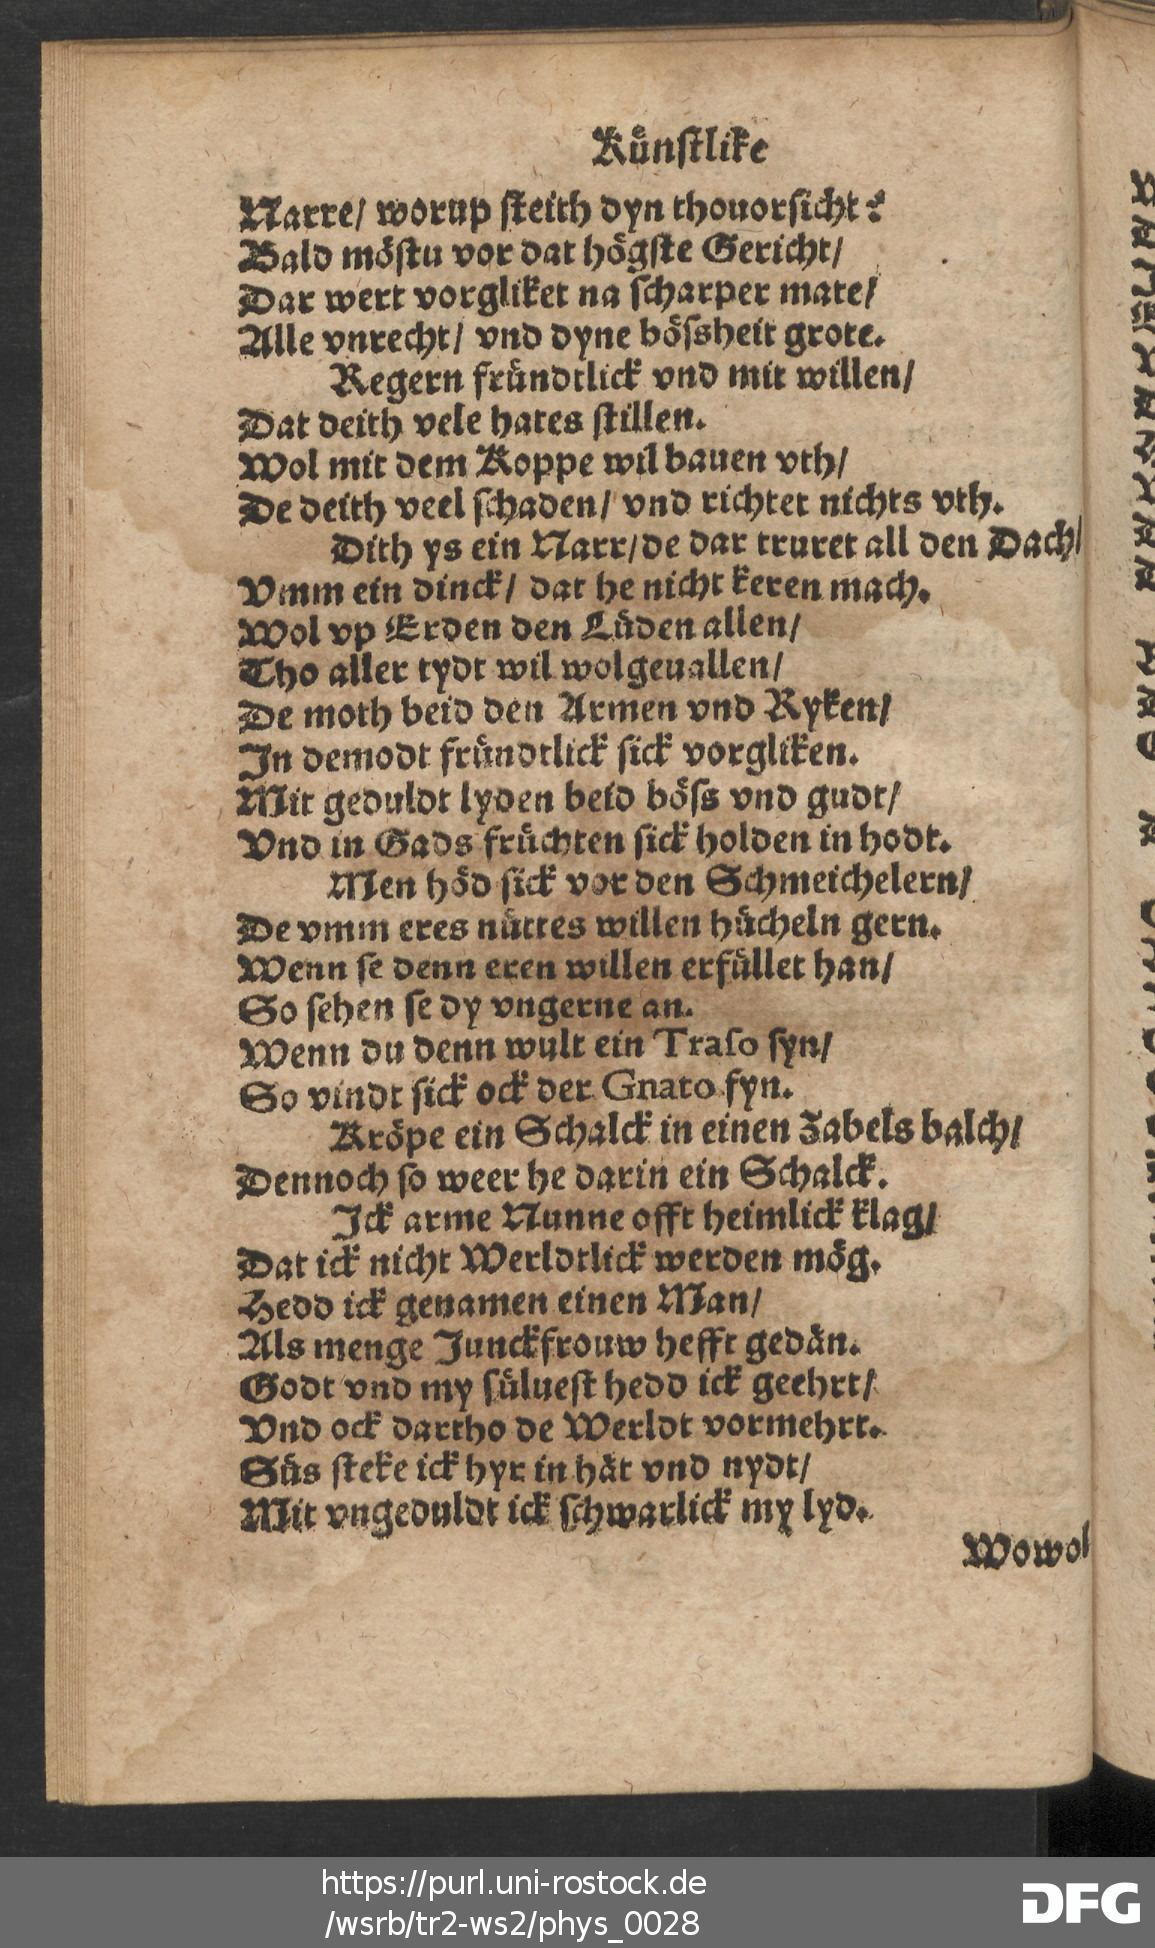 Kuͤnſtlike
Narre/ worup ſteith dyn thouorſicht?
Bald moͤſtu vor dat hoͤgſte Gericht/
Dar wert vorgliket na ſcharper mate/
Alle vnrecht/ vnd dyne boͤſsheit grote.
Regern fruͤndtlick vnd mit willen/
Dat deith vele hates ſtillen.
Wol mit dem Koppe wil bauen vth/
De deith veel ſchaden/ vnd richtet nichts vth.
Dith ys ein Narr/ de dar truret all den Dach/
Vmm ein dinck/ dat he nicht keren mach.
Wol vp Erden den Luͤden allen/
Tho aller tydt wil wolgeuallen/
De moth beid den Armen vnd Ryken/
In demodt fruͤndtlick ſick vorgliken.
Mit geduldt lyden beid boͤſs vnd gudt/
Vnd in Gads fruͤchten ſick holden in hodt.
Men hoͤd ſick vor den Schmeichelern/
De vmm eres nuͤttes willen huͤcheln gern.
Wenn ſe denn eren willen erfuͤllet han/
So ſehen ſe dy vngerne an.
Wenn du denn wult ein Traſo ſyn/
So vindt ſick ock der Gnato fyn.
Kroͤpe ein Schalck in einen Zabels balch/
Dennoch ſo weer he darin ein Schalck.
Ick arme Nunne offt heimlick klag/
Dat ick nicht Werldtlick werden moͤg.
Hedd ick genamen einen Man/
Als menge Junckfrouw hefft gedaͤn.
Godt vnd my ſuͤlueſt hedd ick geehrt/
Vnd ock dartho de Werldt vormehrt.
Suͤs ſteke ick hyr in haͤt vnd nydt/
Mit vngeduldt ick ſchwarlick my lyd.
Wowol
https://purl.uni-rostock.de
/wsrb/tr2-ws2/phys_0028
DFG